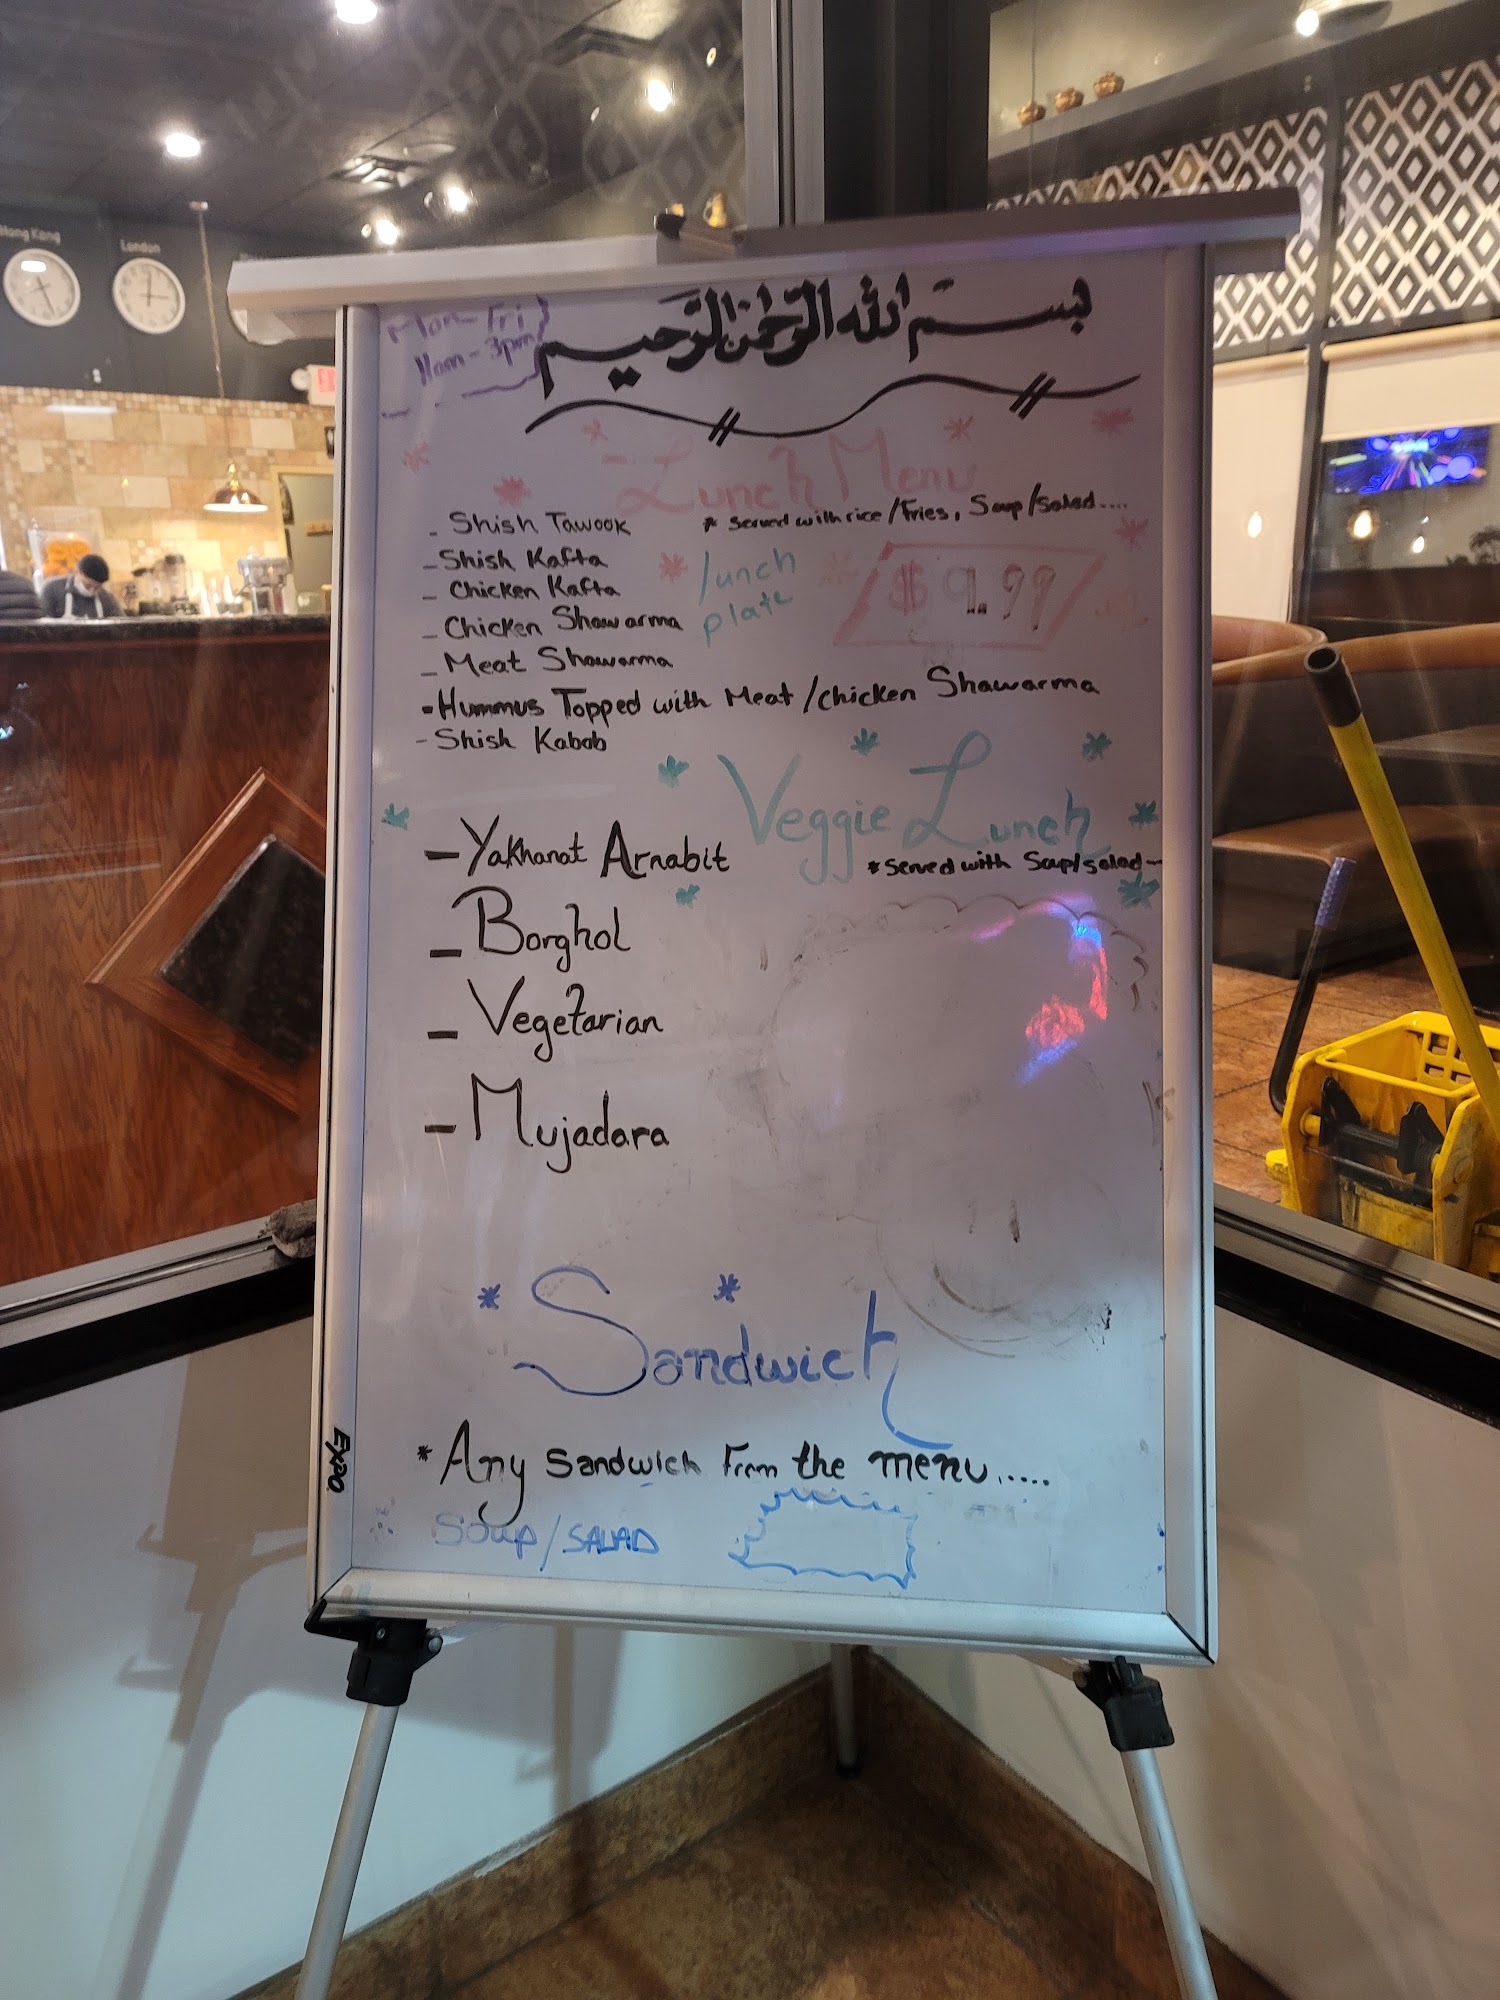 Hong Kong
London
Mon-Fri
11am-3pm
بسم الله الرَّحمن الرَّحيم
- Lunch Menu
- Shish Tawook
* Served with rice/Fries, Soup/Salad....
- Shish Kafta
- Chicken Kafta
lunch
plate
$9.99
- Chicken Shawarma
- Meat Shawarma
- Hummus Topped with Meat/chicken Shawarma
- Shish Kabob
Veggie Lunch
* Served with Soup/salad-
- Yakhanat Arnabit
- Borghol
- Vegetarian
- Mujadara
* Sandwich *
* Any Sandwich From the menu.....
Soup/SALAD
EXPO